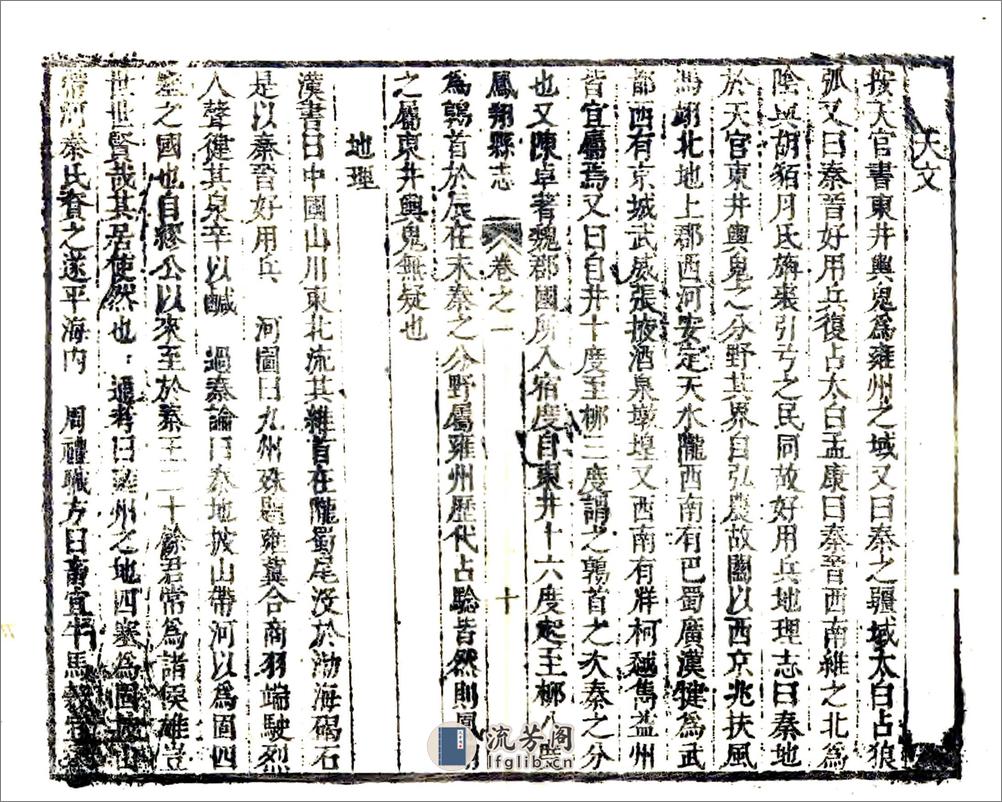 天文
按天官書東井輿鬼為雍州之域又曰秦之疆域太白占狼
弧又曰秦晉好用兵復占太白孟康曰秦晉西南維之北為
陰與胡貊月氏旃裘引弓之民同故好用兵地理志曰秦地
於天官東井輿鬼之分野其界自弘農故關以西京兆扶風
馮翊北地上郡西河安定天水隴西南有巴蜀廣漢犍為武
都西有京城武威張掖酒泉墩煌又西南有牂柯越雋益州
皆宜屬焉又曰自井十度至柳三度謂之鶉首之次秦之分
也又陳卓著魏郡國所入宿度自東井十六度起至柳八度
鳳翔縣志 卷之一 十
為鶉首於辰在未秦之分野屬雍州歷代占驗皆然則鳳
之屬東井輿鬼無疑也
地理
漢書曰中國山川東北流其維首在隴蜀尾沒於渤海碣石
是以秦晉好用兵 河圖曰九州殊題雍冀合商羽端駛烈
人聲健其泉辛以鹹 過秦論曰秦地披山帶河以為固四
塞之國也自繆公以來至於秦王二十餘君常為諸侯雄豈
世世賢哉其居使然也 通考曰雍州之地四塞為固被山
帶河秦氏資之遂平海內 周禮職方曰畜宜牛馬穀宜
流芳阁
lfglib.cn